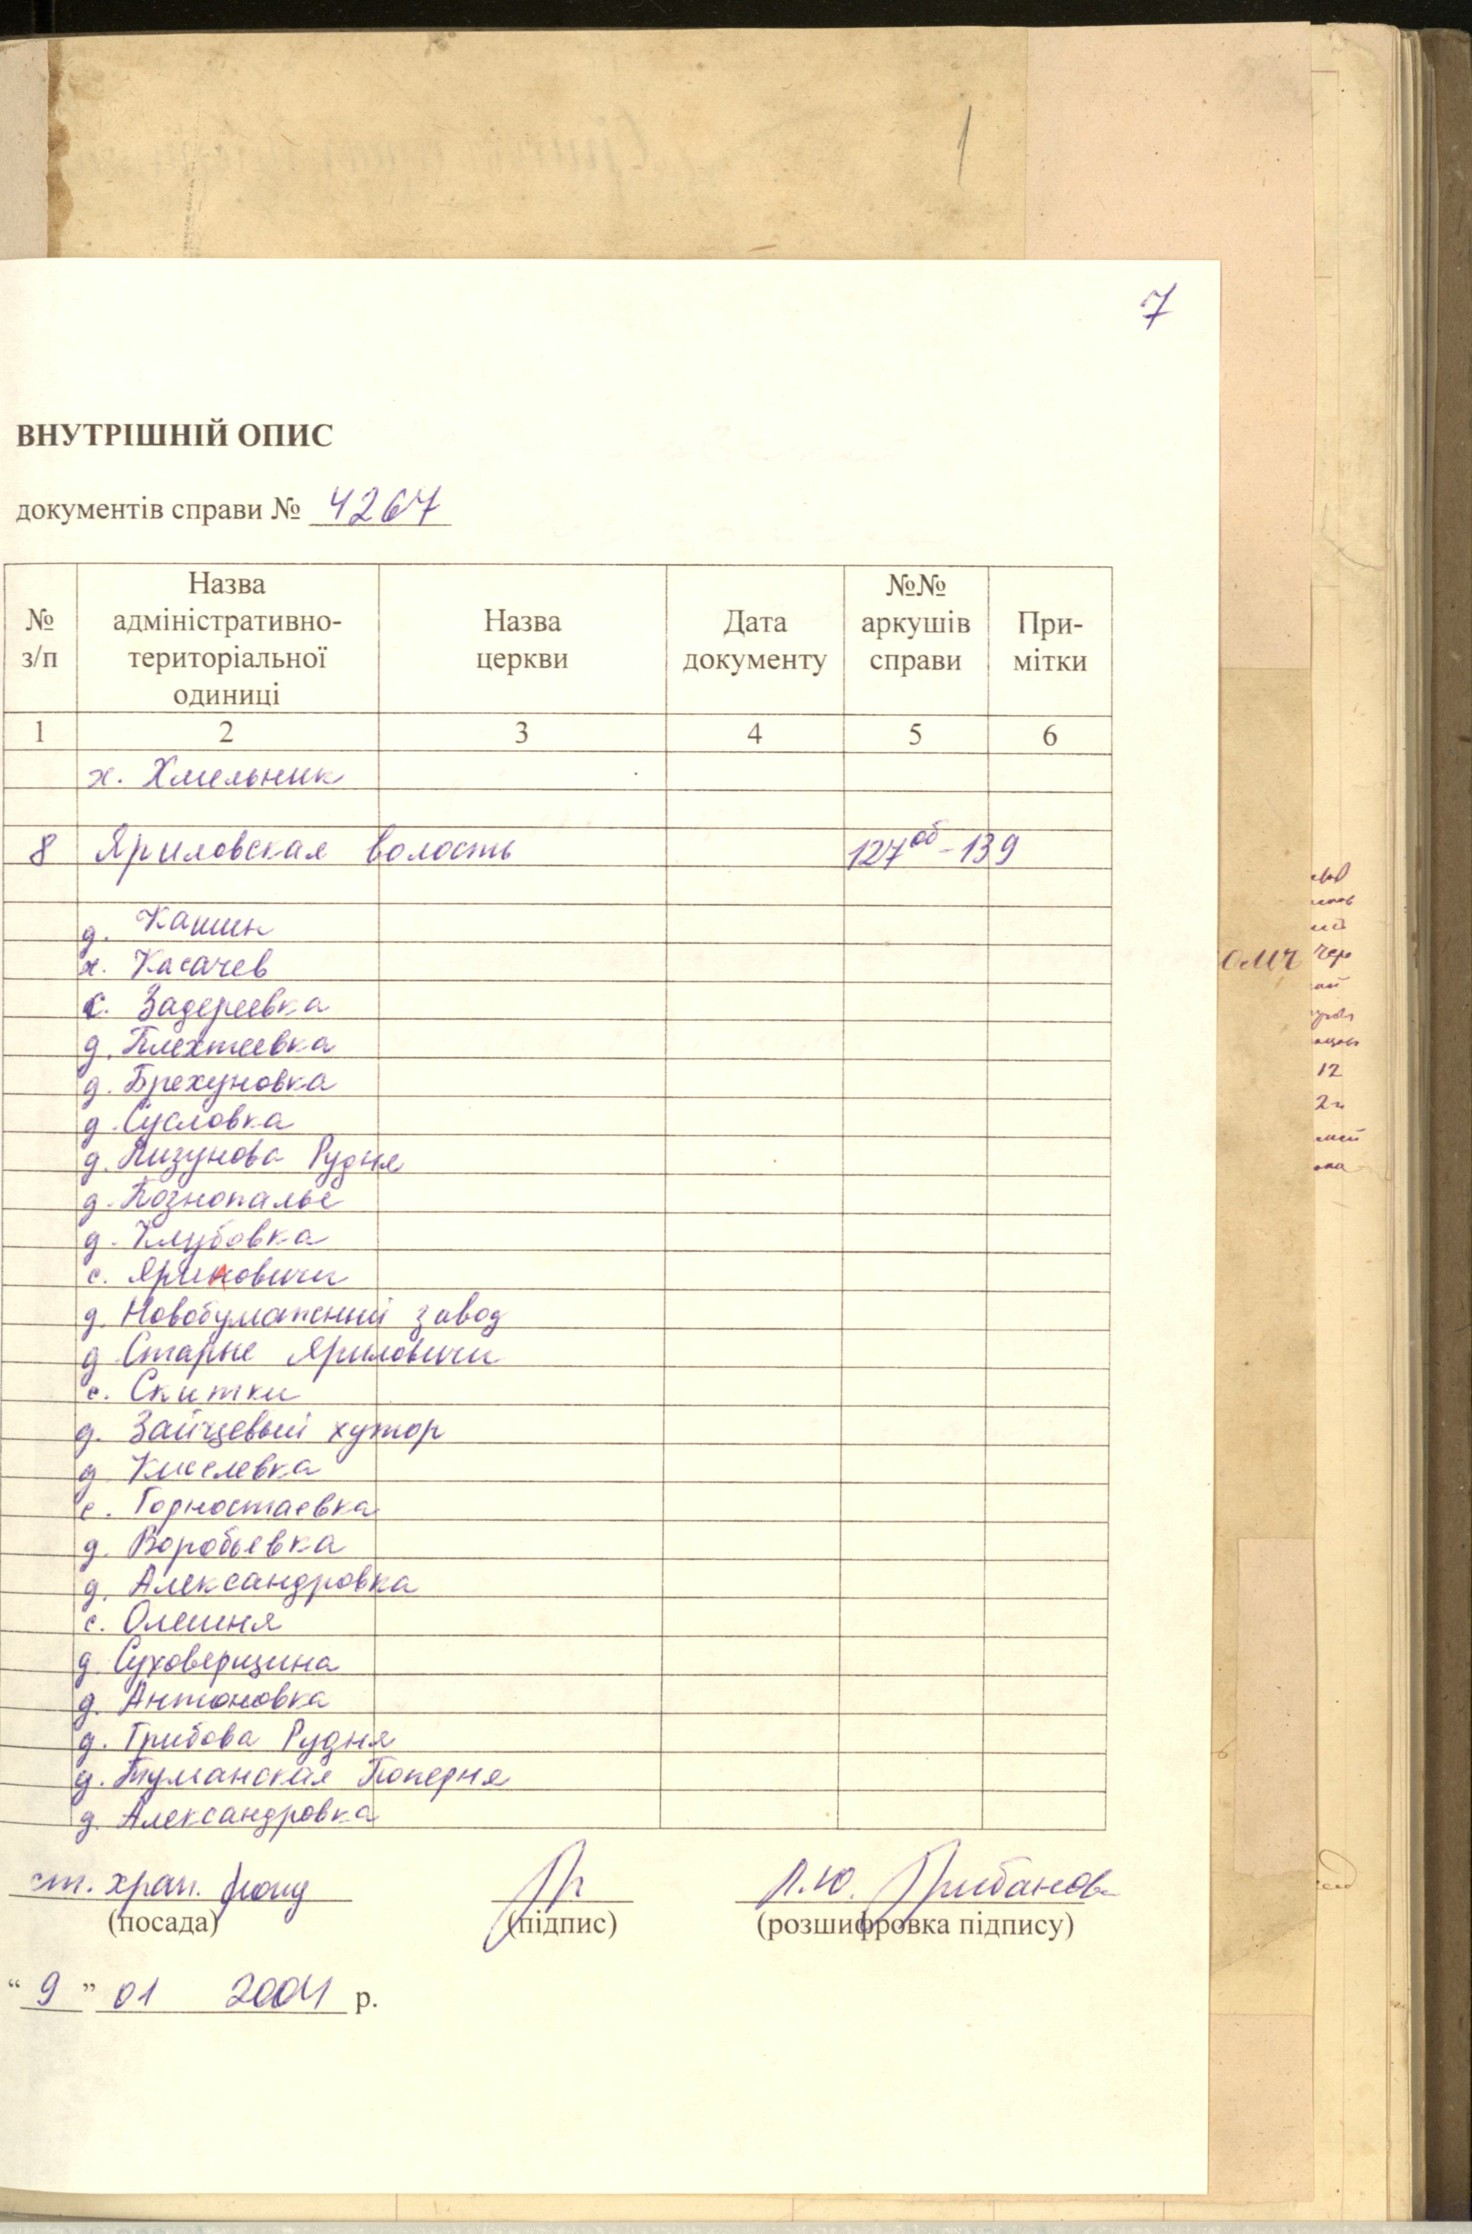 1
7
ВНУТРІШНІЙ ОПИС
документів справи № 4267
№ з/п
Назва адміністративно-територіальної одиниці
Назва церкви
Дата документу
№№ аркушів справи
Примітки
1 2 3 4 5 6
х. Хмельник
8 Яриловская волость 127об-139
д. Кашин
х. Касачев
с. Задереевка
д. Плехтеевка
д. Брехуновка
д. Сусловка
д. Лизунова Рудня
д. Познопалье
д. Клубовка
с. Яриловичи
д. Новобумажный завод
д Старые Яриловичи
с. Скитки
д. Зайцевый хутор
д Киселевка
с. Горностаевка
д. Воробьевка
д. Александровка
с. Олешня
д. Суховерщина
д. Антоновка
д. Грибова Рудня
д. Туманская Поперня
д. Александровка
ст. хран. фонд
Л.Ю. Грибанов
(посада) (підпис) (розшифровка підпису)
“9” 01 2004 р.